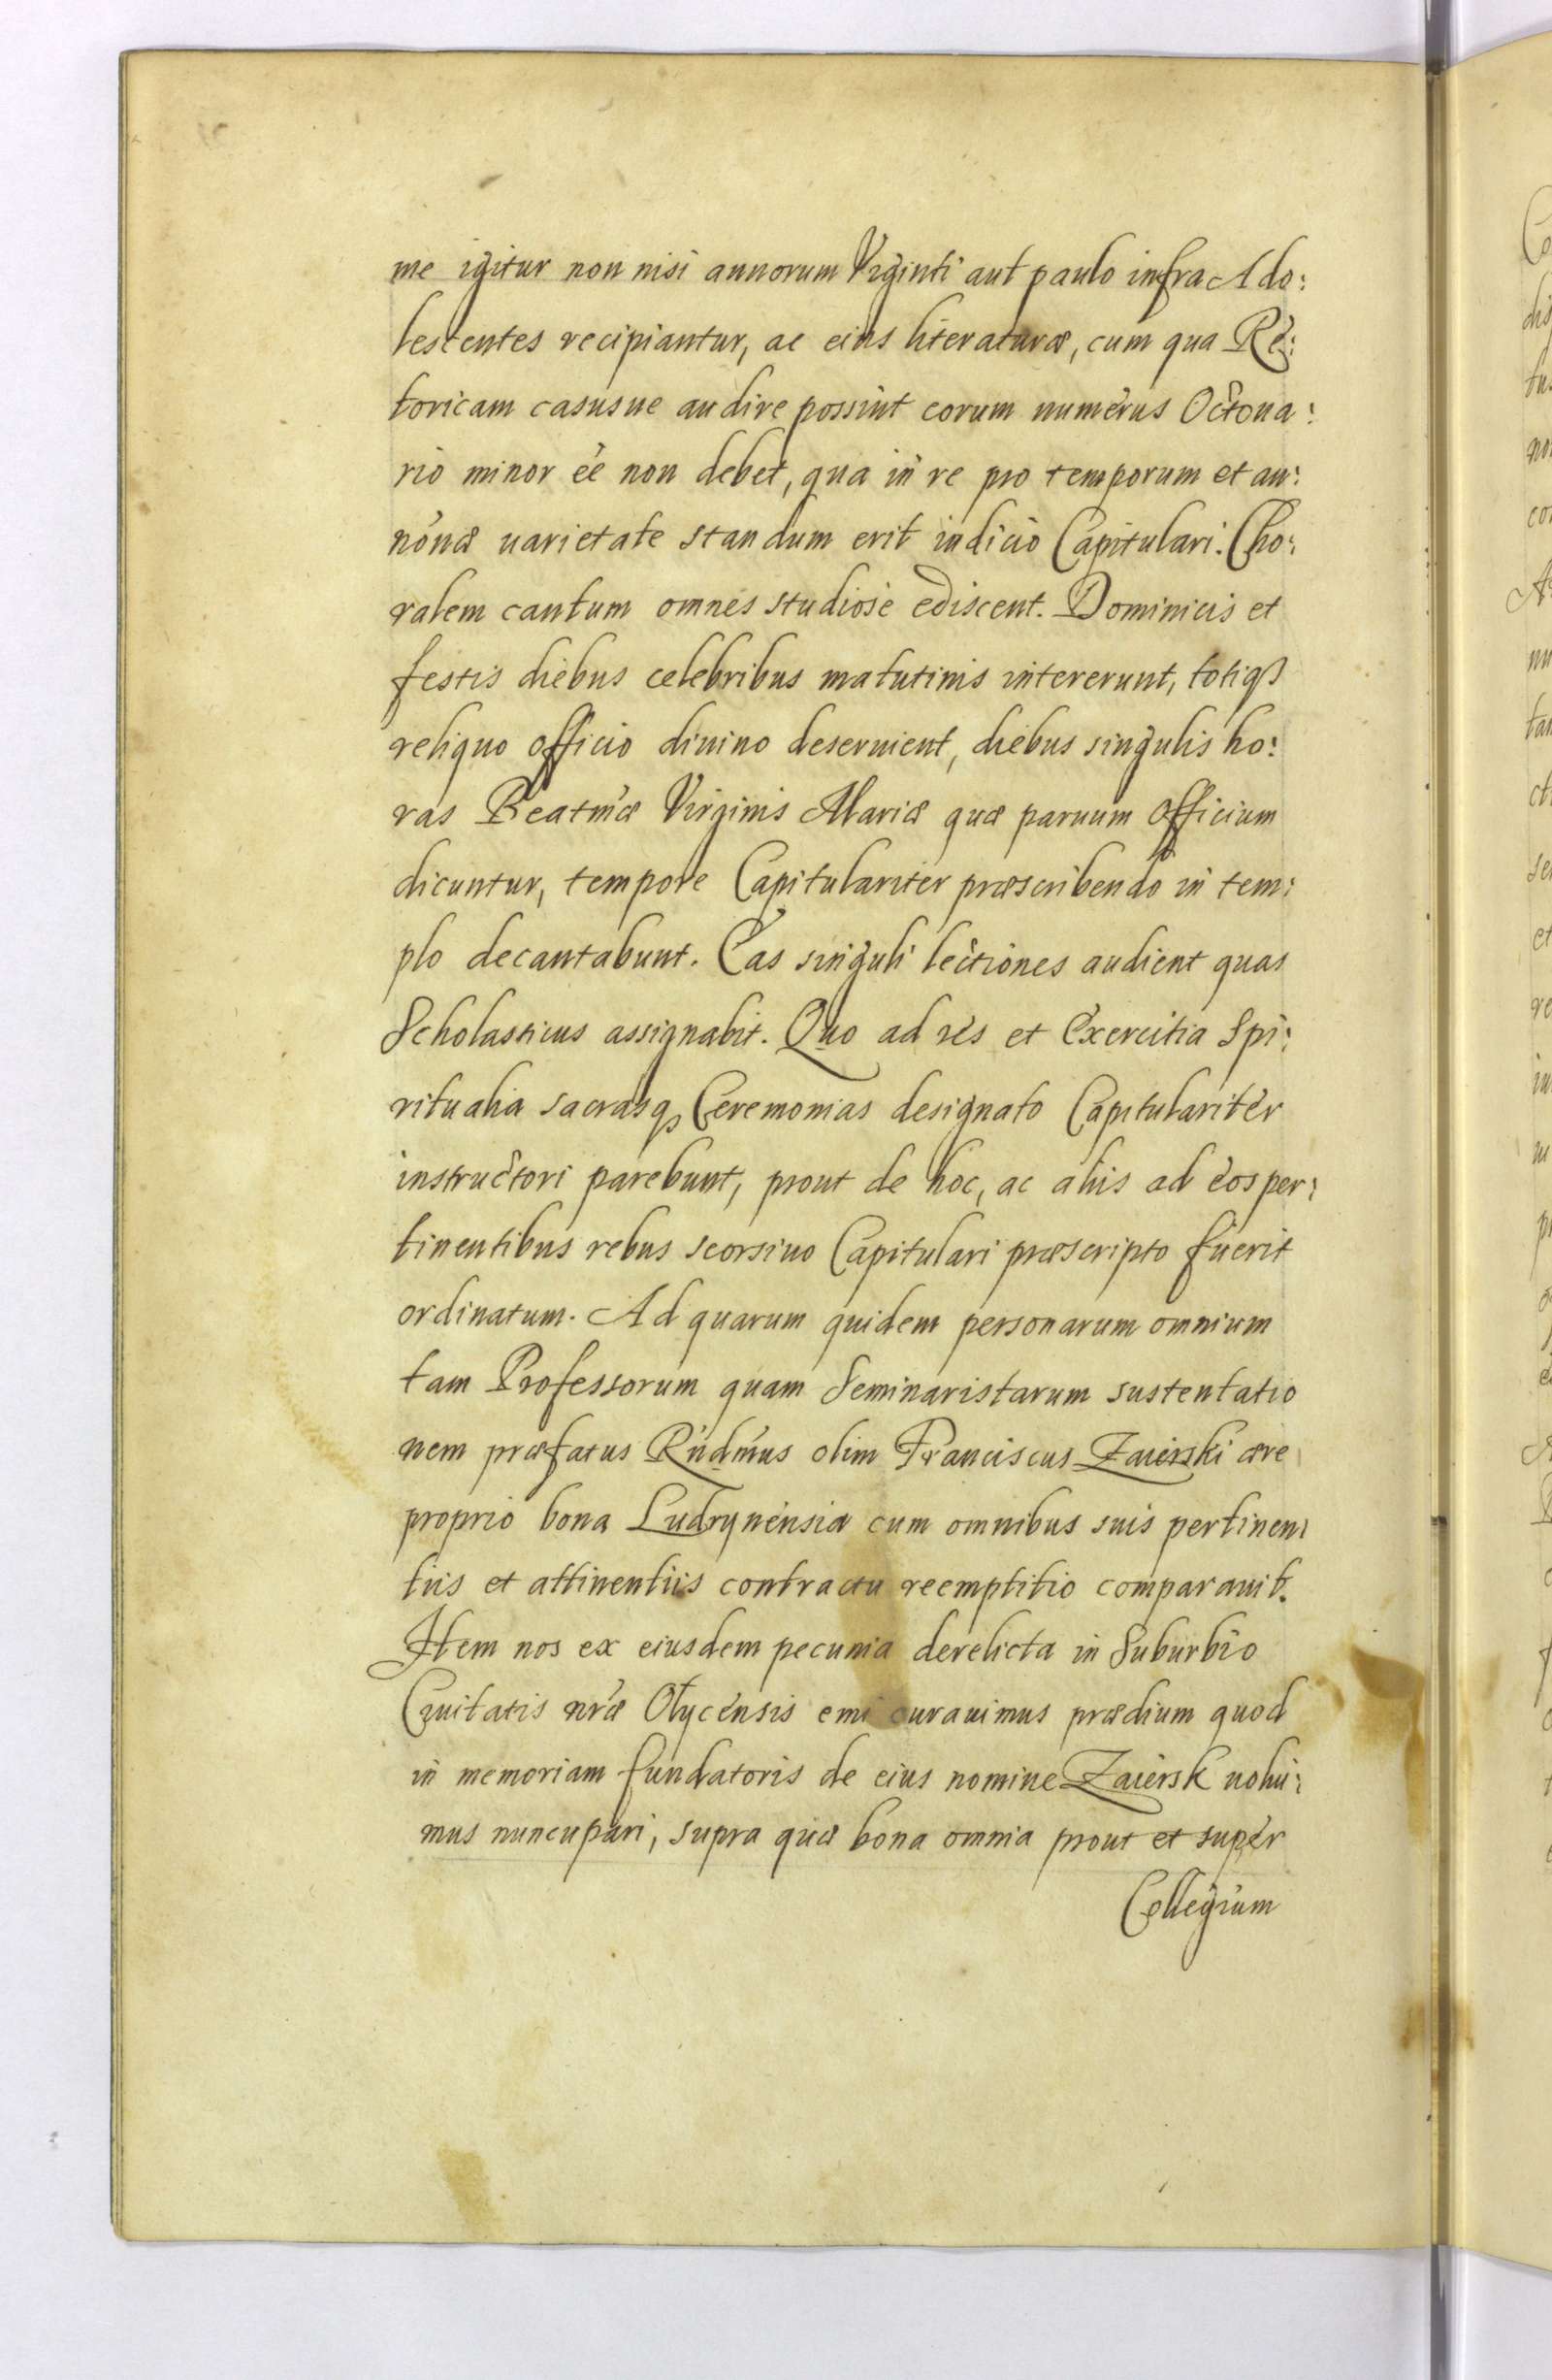 me igitur non nisi annorum Viginti aut paulo infra Ado:
lescentes recipiantur, ac eius literaturæ, cum qua Re:
toricam casusue audire possint eorum numerus Octona:
rio minor ẽe non debet, qua in re pro temporum et an:
nonæ uarietate standum erit iudicio Capitulari. Cho:
ralem cantum omnes studiose ediscent. Dominicis et
festis diebus celebribus matutinis intererunt, totiqꝫ
reliquo officio diuino deseruient, diebus singulis ho:
ras Beatmæ Virginis Mariæ quæ paruum officium
dicuntur, tempore Capitulariter præscribendo in tem:
plo decantabunt. Eas singuli lectiones audient quas
Scholasticus assignabit. Quo ad res et Exercitia Spi:
ritualia sacrasqꝫ Ceremonias designato Capitulariter
instructori parebunt, prout de hoc, ac aliis ad eos per:
tinentibus rebus seorsiuo Capitulari præscripto fuerit
ordinatum. Ad quarum quidem personarum omnium
tam Professorum quam Seminaristarum sustentatio
nem præfatus Rñdmus olim Franciscus Zaierski ære
proprio bona Ludrynensia cum omnibus suis pertinen:
tiis et attinentiis contractu reemptitio comparauit.
Item nos ex eiusdem pecunia derelicta in Suburbio
Ciuitatis nræ Olycensis emi curauimus prædium quod
in memoriam fundatoris de eius nomine Zaiersk uolui:
mus nuncupari, supra quæ bona omnia prout et super
Collegium